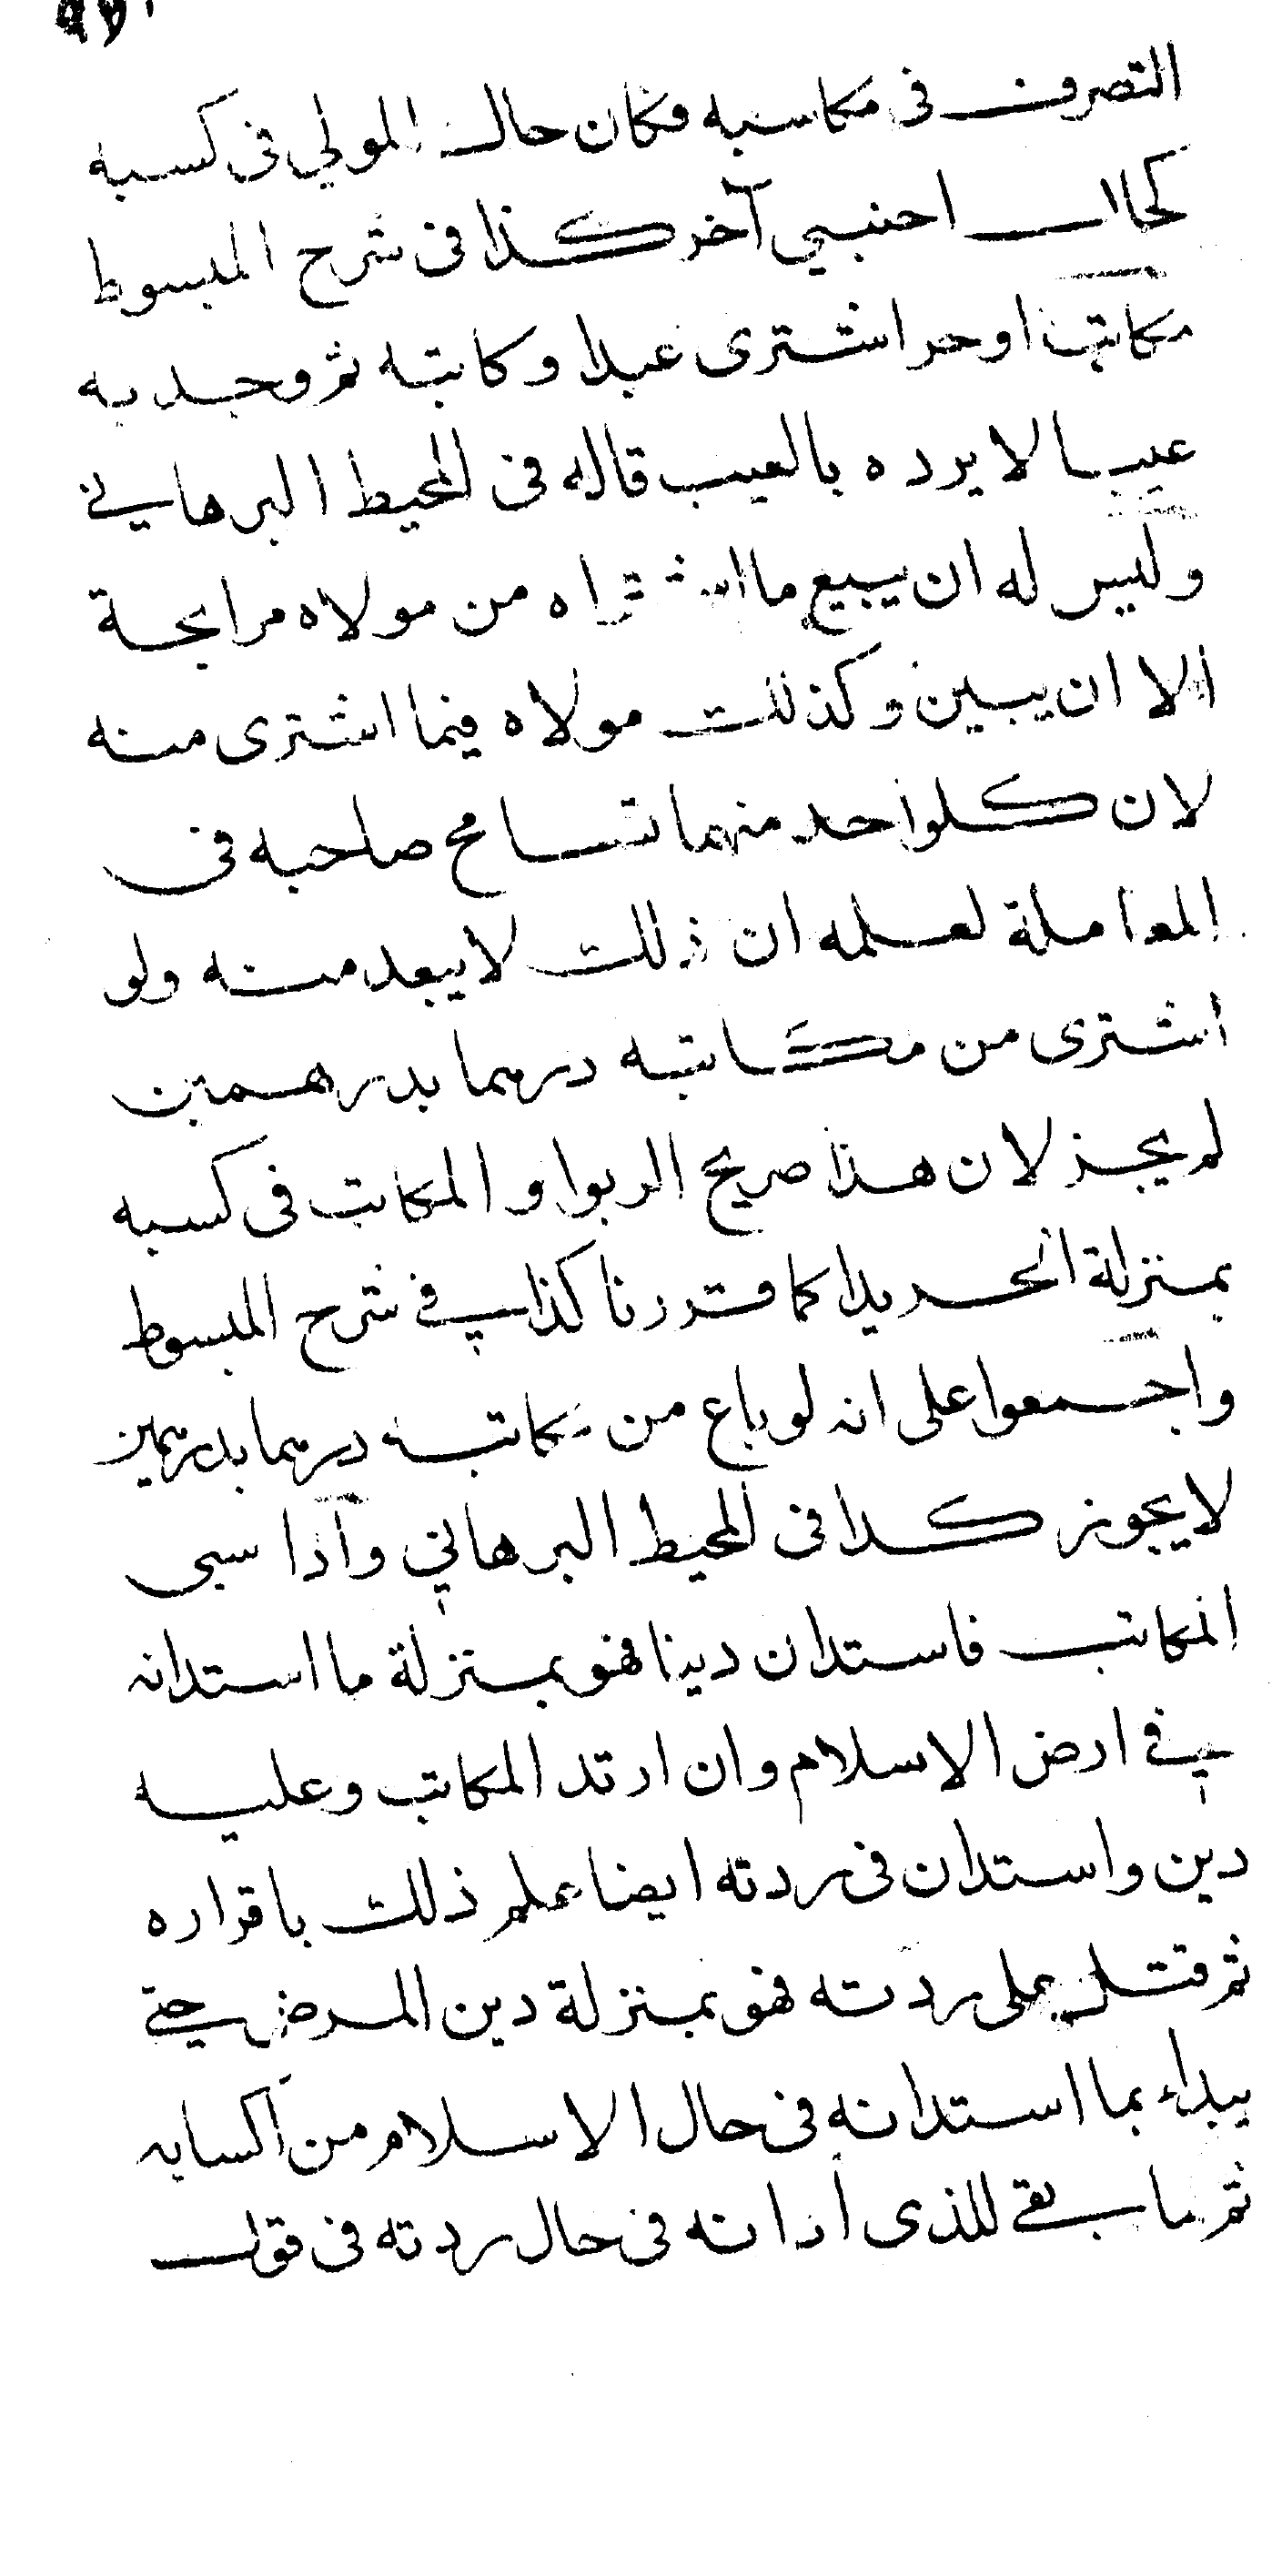 التصرف فى مكاسبه فكان حال المولي فى كسبه
كحال اجنبي آخر كذا فى شرح المبسوط
مكاتب او حر اشترى عبدا وكاتبه ثم وجد به
عيبا لا يرده بالعيب قاله فى المحيط البرهاني
وليس له ان يبيع ما اشتراه من مولاه مرابحة
الا ان يبين وكذلك مولاه فيما اشترى منه
لان كلواحد منهما تسامح صاحبه فى
المعاملة لعلمه ان ذلك لا يبعد منه ولو
اشترى من مكاتبه درهما بدرهمين
لم يجز لان هذا صريح الربوا والمكاتب فى كسبه
بمنزلة الحر يدا كما قررنا كذا في شرح المبسوط
واجمعوا على انه لو باع من مكاتبه درهما بدرهمين
لا يجوز كذا فى المحيط البرهاني واذا سبى
المكاتب فاستدان دينا فهو بمنزلة ما استدانه
في ارض الاسلام وان ارتد المكاتب وعليه
دين واستدان فى ردته ايضا علم ذلك باقراره
ثم قتل على ردته فهو بمنزلة دين المرض حتى
يبداء بما استدانه فى حال الاسلام من اكسابه
ثم ما بقى للذى ادانه فى حال ردته فى قول